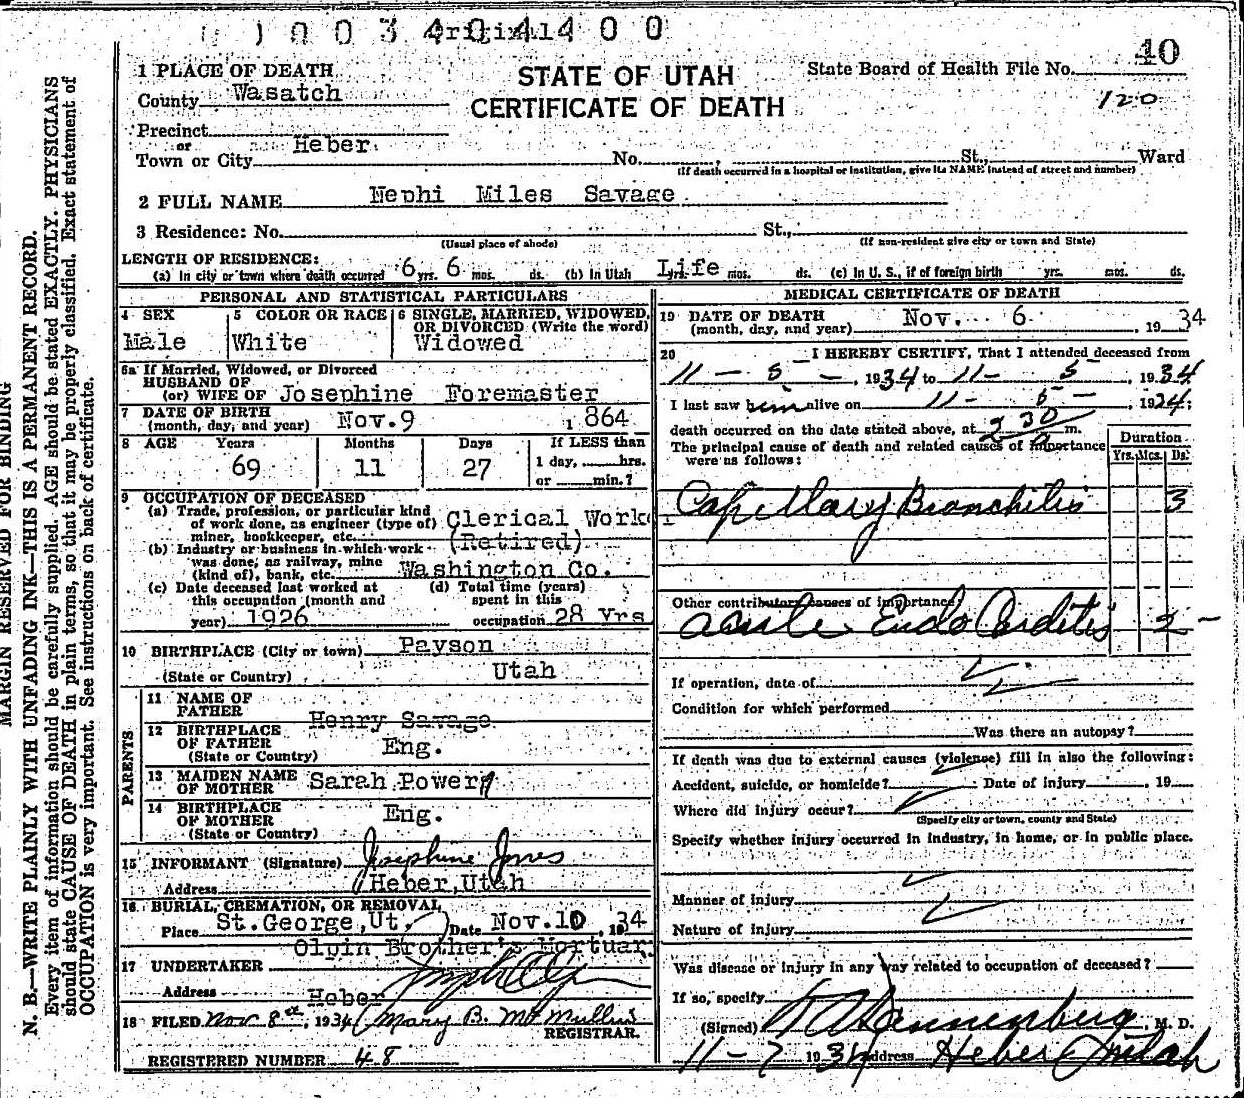 0 0 3 4 0 4 4 0 0
Original
40
120
1 PLACE OF DEATH
STATE OF UTAH
CERTIFICATE OF DEATH
State Board of Health File No.
County Wasatch
Precinct
or
Town or City Heber No. St., Ward
(If death occurred in a hospital or institution, give its NAME instead of street and number)
2 FULL NAME Nephi Miles Savage
3 Residence: No. St.,
(Usual place of abode) (If non-resident give city or town and State)
LENGTH OF RESIDENCE:
(a) In city or town where death occurred 6 yrs. 6 mos. ds. (b) In Utah Life yrs. mos. ds. (c) In U. S., if of foreign birth yrs. mos. ds.
PERSONAL AND STATISTICAL PARTICULARS
4 SEX Male
5 COLOR OR RACE White
6 SINGLE, MARRIED, WIDOWED, OR DIVORCED (Write the word) Widowed
6a If Married, Widowed, or Divorced
HUSBAND OF
(or) WIFE OF Josephine Foremaster
7 DATE OF BIRTH
(month, day, and year) Nov.9 1864
8 AGE Years Months Days If LESS than
69 11 27 1 day, hrs.
or min.?
9 OCCUPATION OF DECEASED
(a) Trade, profession, or particular kind
of work done, as engineer (type of)
miner, bookkeeper, etc. Clerical Worker
(Retired)
(b) Industry or business in which work
was done, as railway, mine
(kind of), bank, etc. Washington Co.
(c) Date deceased last worked at
this occupation (month and
year) 1926
(d) Total time (years)
spent in this
occupation 28 Yrs
10 BIRTHPLACE (City or town) Payson
(State or Country) Utah
PARENTS
11 NAME OF
FATHER Henry Savage
12 BIRTHPLACE
OF FATHER Eng.
(State or Country)
13 MAIDEN NAME
OF MOTHER Sarah Power
14 BIRTHPLACE
OF MOTHER Eng.
(State or Country)
15 INFORMANT (Signature) Josephine Jones
Address Heber, Utah
16 BURIAL, CREMATION, OR REMOVAL
Place St. George, Ut. Date Nov.10, 1934
Olpin Brother's Mortuary
17 UNDERTAKER
Address Heber
18 FILED Nov 8th, 1934 Mary B. McMullin
REGISTRAR.
REGISTERED NUMBER 48
MEDICAL CERTIFICATE OF DEATH
19 DATE OF DEATH
(month, day, and year) Nov. 6, 1934
20 I HEREBY CERTIFY, That I attended deceased from
11 - 5 -, 1934 to 11 - 5, 1934
I last saw him alive on 11 - 5 -, 1934;
death occurred on the date stated above, at 2 30 a m.
The principal cause of death and related causes of importance
were as follows:
Duration
Yrs. Mos. Ds.
Capillary Bronchitis 3
Other contributory causes of importance:
acute Endo Carditis 2 -
If operation, date of
Condition for which performed
Was there an autopsy?
If death was due to external causes (violence) fill in also the following:
Accident, suicide, or homicide? Date of injury, 19
Where did injury occur?
(Specify city or town, county and State)
Specify whether injury occurred in industry, in home, or in public place.
Manner of injury
Nature of injury
Was disease or injury in any way related to occupation of deceased?
If so, specify
(Signed) Dannenberg, M. D.
11 - 7 1934 Address Heber Utah
MARGIN RESERVED FOR BINDING
N. B.—WRITE PLAINLY WITH UNFADING INK—THIS IS A PERMANENT RECORD.
Every item of information should be carefully supplied. AGE should be stated EXACTLY. PHYSICIANS
should state CAUSE OF DEATH in plain terms, so that it may be properly classified. Exact statement of
OCCUPATION is very important. See instructions on back of certificate.